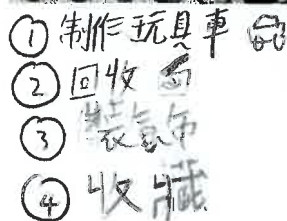 ① 制作玩具車
② 回收
③ 裝
④ 收